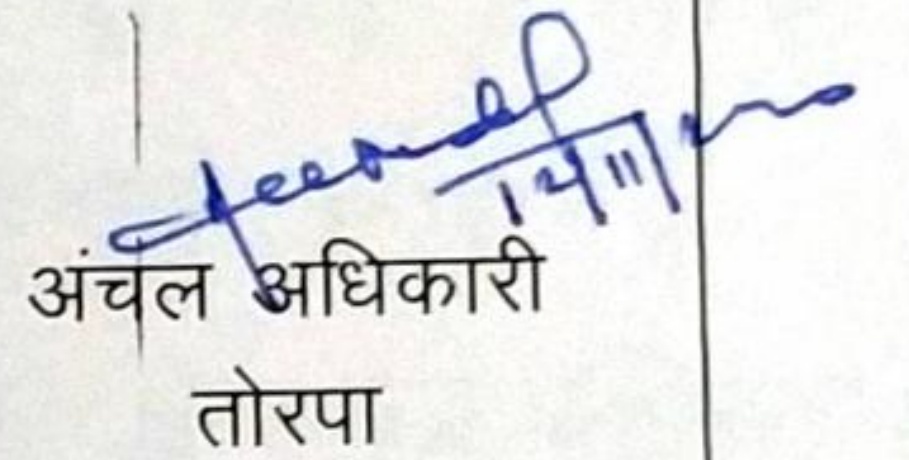 14/11/
अंचल अधिकारी
तोरपा